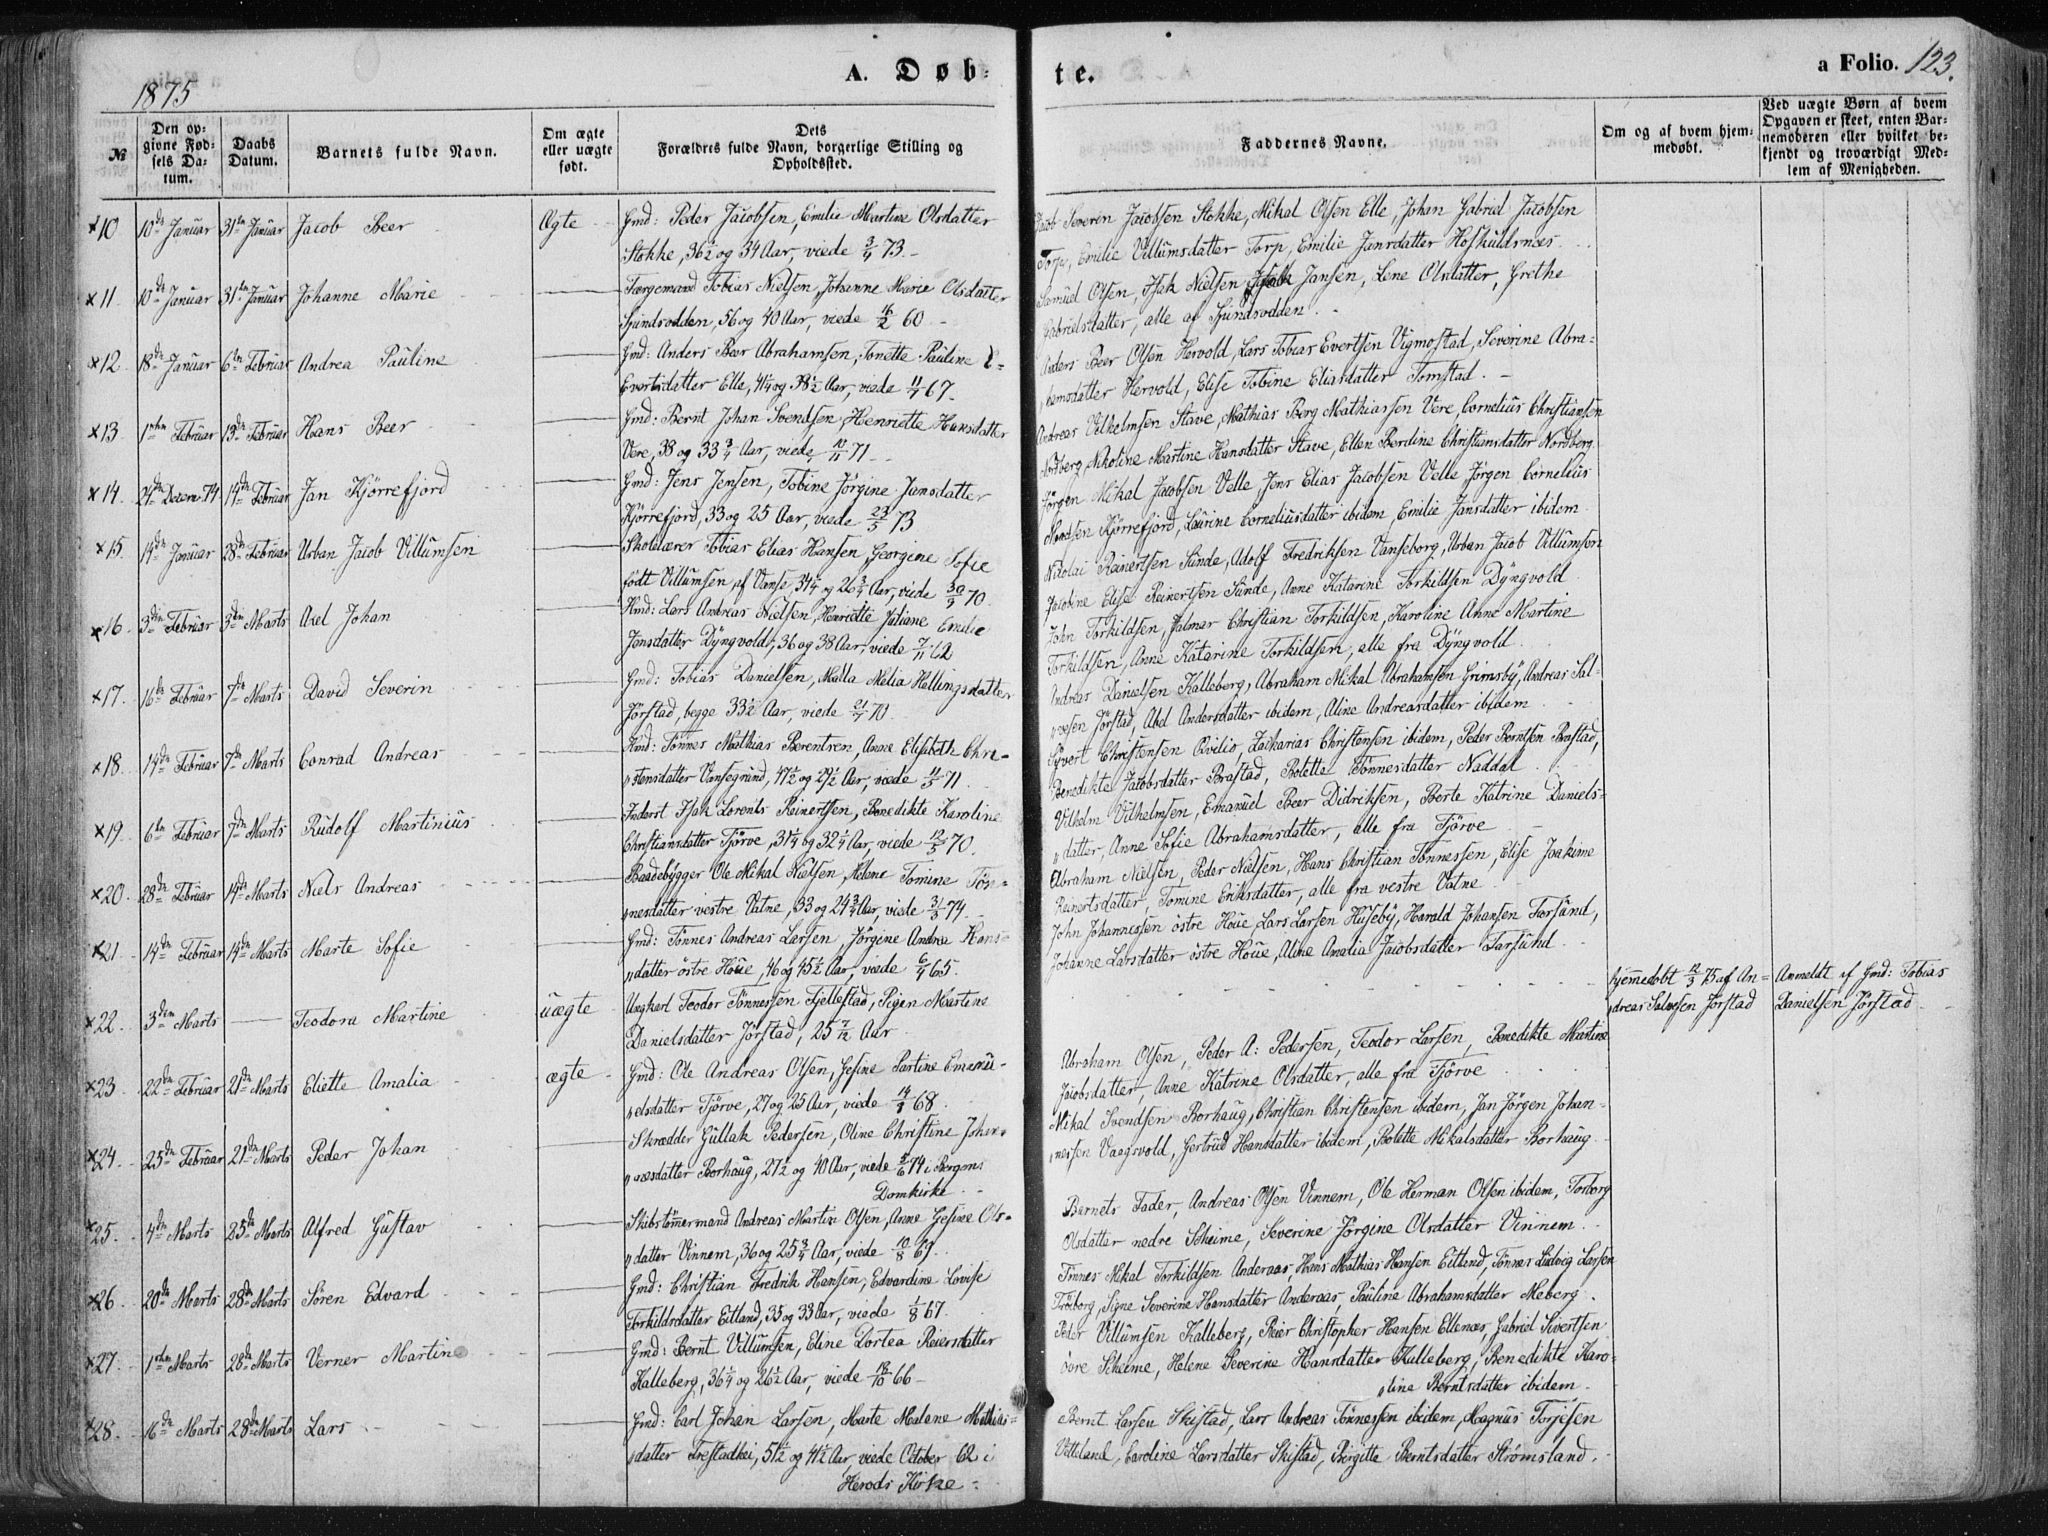 1875
A. Døb-
te.
a Folio. 123.
№
Den op-
givne Fød-
sels Da-
tum.
Daabs
Datum.
Barnets fulde Navn.
Om ægte
eller uægte
født.
Dets
Forældres fulde Navn, borgerlige Stilling og
Opholdssted.
Faddernes Navne.
Om og af hvem hjem-
medøbt.
Ved uægte Børn af hvem
Opgaven er skeet, enten Bar-
nemoderen eller hvilket be-
kjendt og troværdigt Med-
lem af Menigheden.
x10 10de Januar 31te Januar Jacob Beer Ægte Gmd: Peder Jacobsen, Emilie Martine Olsdatter
Stokke, 36½ og 34 Aar, viede 3/4 73.
Jacob Severin Jacobsen Stokke, Mikal Olsen Elle, Johan Gabriel Jacobsen
Torp, Emilie Villumsdatter Torp, Emilie Jansdatter Hoskuldsnæs.
x11. 10de Januar 31te Januar Johanne Marie Færgemand Tobias Nielsen, Johanne Marie Olsdatter
Spindsodden, 56 og 40 Aar, viede 16/2 60
Samuel Olsen, Isak Nielsen, Jansen, Lene Olsdatter, Grethe
Gabrielsdatter, alle af Spindsodden.
x12. 18de Januar 6te Februar Andrea Pauline Gmd: Anders Beer Abrahamsen, Tonette Pauline E-
Evertsdatter Elle, 41¼ og 38½ Aar, viede 11/7 67.
Anders Beer Olsen Hervold, Lars Tobias Evertsen Vigmostad, Severine Abra-
hamsdatter Hervold, Elise Tobine Eliasdatter Tomstad.
x13. 1ste Februar 13de Februar Hans Beer Gmd: Bernt Johan Svendsen, Henriette Hansdatter
Vere, 38 og 33¾ Aar, viede 10/11 71
Andreas Vilhelmsen Stave, Mathias Berg Mathiassen Vere, Cornelius Christiansen
Nordberg, Nikoline Martine Hansdatter Stave, Ellen Berdine Christiansdatter Nordberg.
x14. 24de Decemr 74 14de Februar Jan Kjørrefjord Gmd: Jens Jensen, Tobine Jørgine Jansdatter
Kjørrefjord, 33 og 25 Aar, viede 23/5 73
Jørgen Mikal Jacobsen Velle, Jens Elias Jacobsen Velle, Jørgen Cornelius
Kjørrefjord, Laurine Corneliusdatter ibidem, Emilie Jansdatter ibidem.
x15. 14de Januar 28de Februar Urban Jacob Villumsen Skolelærer Tobias Elias Hansen, Georgine Sofie
født Villumsen, af Vanse, 34¼ og 26¾ Aar, viede 30/9 70.
Nikolai Reinertsen Sunde, Adolf Fredriksen Vanseborg, Urban Jacob Villumsen
Jacobine Elise Reinertsen Sunde, Anne Katarine Torkildsen Dyngvold.
x16. 3die Februar 3die Marts Axel Johan Hmd: Lars Andreas Nielsen, Henriette Juliane Emilie
Jonsdatter Dyngvold, 36 og 38 Aar, viede 7/11 62
John Torkildsen, Jalmar Christian Torkildsen, Karoline Anne Martine
Torkildsen, Anne Katarine Torkildsen, alle fra Dyngvold.
x17. 16de Februar 7de Marts David Severin Gmd: Tobias Danielsen, Malla Melia Hellingsdatter
Jørstad, begge 33½ Aar, viede 21/7 70.
Andreas Danielsen Kalleberg, Abraham Mikal Abrahamsen Grimsby, Andreas Sal-
vesen Jørstad, Abel Andersdatter ibidem, Aline Andreasdatter ibidem
x18. 14de Februar 7de Marts Conrad Andreas Hmd: Tønnes Mathias Berentsen, Anne Elisabeth Chri-
stensdatter Vansegrund, 47½ og 29½ Aar, viede 11/5 71.
Syvert Christensen Qvilio, Zackarias Christensen ibidem, Peder Berntsen Brastad,
Benedikte Jacobsdatter Brastad, Bolette Tønnesdatter Naddal
x19. 6te Februar 7de Marts Rudolf Martinius Inderst Isak Lorents Reinertsen, Benedikte Karoline
Christiansdatter Tjørve, 31¼ og 32¼ Aar, viede 12/5 70.
Vilhelm Vilhelmsen, Emanuel Beer Didriksen, Berte Katrine Daniels-
datter, Anne Sofie Abrahamsdatter, alle fra Tjørve
x20. 28de Februar 14de Marts Niels Andreas Baadebygger Ole Mikal Nielsen, Helene Tomine Tøn-
nesdatter vestre Vatne, 33 og 24¾ Aar, viede 31/3 74.
Abraham Nielsen, Peder Nielsen, Hans Christian Tønnessen, Elise Joakime
Reinertsdatter, Tomine Eriksdatter, alle fra vestre Vatne
x21. 14de Februar 14de Marts Marte Sofie Gmd: Tønnes Andreas Larsen, Jørgine Andrea Hans-
datter østre Houe, 46 og 45½ Aar, viede 6/4 65.
John Johannessen østre Houe, Lars Larsen Huseby, Harald Johansen Farsund,
Johanne Larsdatter østre Houe, Aline Amalia Jacobsdatter Farsund
x22. 3die Marts Teodora Martine uægte Ungkarl Teodor Tønnessen Fjellestad, Pigen Martine
Danielsdatter Jørstad, 25 7/12 Aar
hjemmedøbt 12/3 75 af An-
dreas Salvesen Jørstad
Anmeldt af Gmd: Tobias
Danielsen Jørstad
x23. 22de Februar 21de Marts Eliette Amalia ægte Gmd: Ole Andreas Olsen, Gesine Sartine Emanu-
elsdatter Tjørve, 27 og 25 Aar, viede 68.
Abraham Olsen, Peder A: Pedersen, Teodor Larsen, Benedikte Martine
Jacobsdatter, Anne Katrine Olsdatter, alle fra Tjørve
x24. 25de Februar 21de Marts Peder Johan Skrædder Gullak Pedersen, Oline Christine Johan-
nesdatter Borhaug, 27½ og 40 Aar, viede 5/6 74 i Bergens
Domkirke
Mikal Svendsen Borhaug, Christian Christensen ibidem, Jan Jørgen Johan-
nessen Vaagsvold, Gertrud Hansdatter ibidem, Bolette Mikalsdatter Borhaug
x25. 4de Marts 25de Marts Alfred Gustav Skibstømmermand Andreas Martin Olsen, Anne Gesine Ols-
datter Vinnem, 36 og 25¾ Aar, viede 10/8 69.
Barnets Fader, Andreas Olsen Vinnem, Ole Herman Olsen ibidem, Torborg
Olsdatter nedre Skeime, Severine Jørgine Olsdatter Vinnem.
x26. 20de Marts 28de Marts Søren Edvard Gmd: Christian Fredrik Hansen, Edvardine Lovise
Torkildsdatter Eitland, 35 og 33 Aar, viede 1/8 67.
Tønnes Mikal Torkildsen Anderaas, Hans Mathias Hansen Eitland, Tønnes Ludvig Larsen
Frøiborg, Signe Severine Hansdatter Anderaas, Pauline Abrahamsdatter Meberg.
x27. 1ste Marts 28de Marts Verner Martin Gmd: Bernt Villumsen, Eline Dortea Reiersdatter
Kalleberg, 36¼ og 26½ Aar, viede 18/10 66
Peder Villumsen Kalleberg, Reier Christopher Hansen Ellenæs, Gabriel Sivertsen
øvre Skeime, Helene Severine Hansdatter Kalleberg, Benedikte Karo-
line Berntsdatter ibidem.
x28. 16de Marts 28de Marts Lars Gmd: Carl Johan Larsen, Marte Malene Mathias-
datter Frestadhei, 51½ og 41½ Aar, viede October 62 i
Herods Kirke
Bernt Larsen Skistad, Lars Andreas Tønnessen ibidem, Magnus Torjesen
Vatteland, Caroline Larsdatter Skistad, Birgitte Berntsdatter Strømsland.